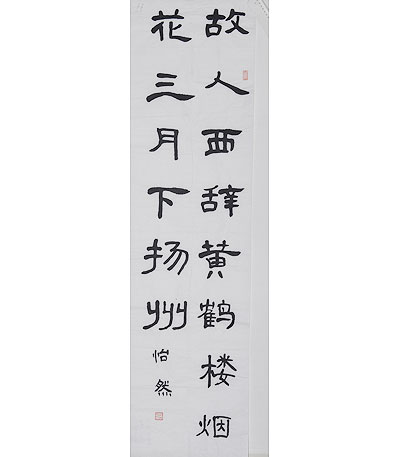 故人西辞黄鹤楼烟
花三月下扬州
怡然